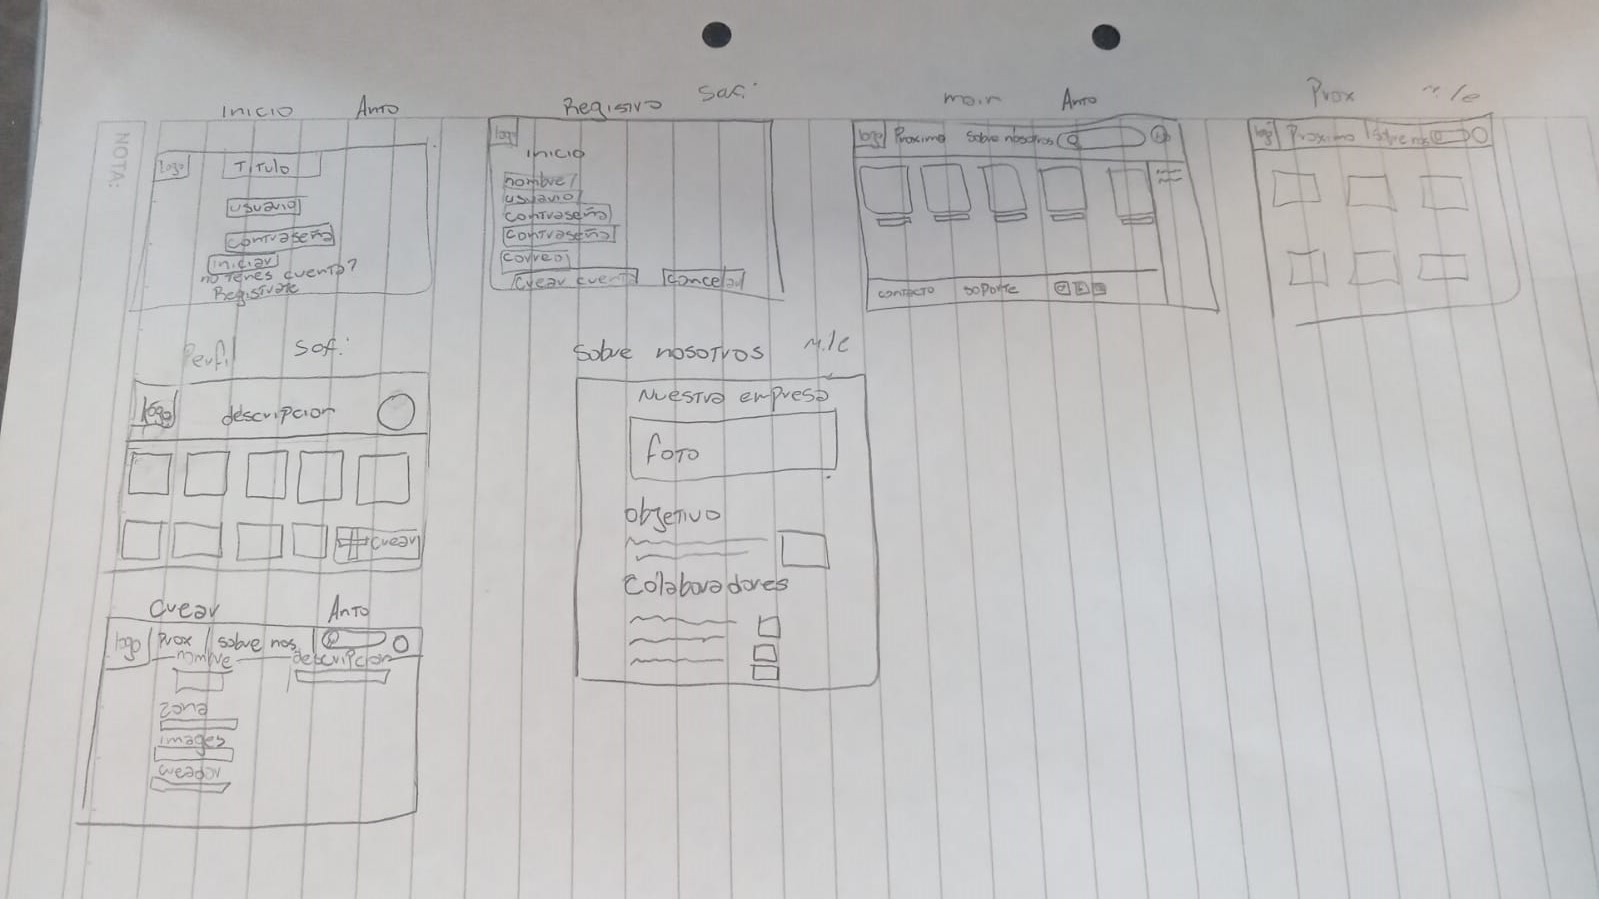 NOTA:
Inicio Anto
logo Titulo
usuario
contraseña
iniciar
no tenes cuenta?
Registrate
Registro Sofi
logo
inicio
nombre
usuario
contraseña
contraseña
correo
Crear cuenta Cancelar
main Anto
logo Proximo Sobre nosotros
contacto soporte
Prox Mile
logo Proximo Sobre nos
Perfil Sofi
logo descripcion
+ crear
Sobre nosotros Mile
Nuestra empresa
foto
Objetivo
Colaboradores
Crear Anto
logo Prox sobre nos
nombre descripcion
zona
images
creador